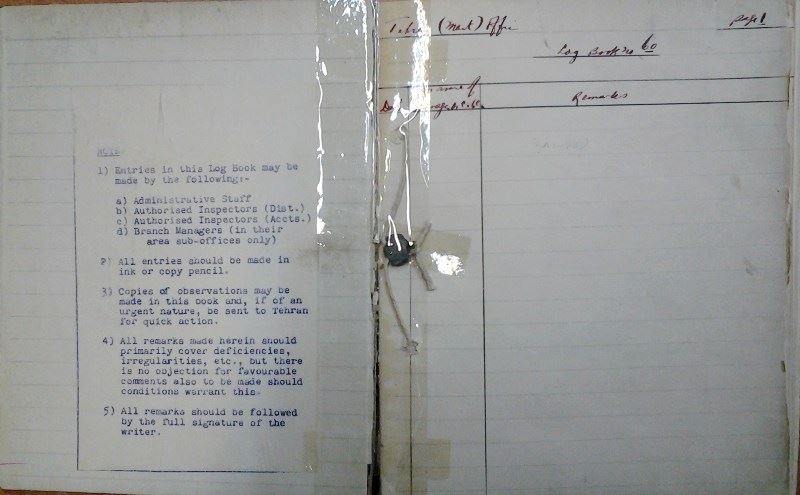 NOTES
1) Entries in this Log Book may be
made by the following:-
a) Administrative Staff
b) Authorised Inspectors (Dist.)
c) Authorised Inspectors (Accts.)
d) Branch Managers (in their
area sub-offices only)
2) All entries should be made in
ink or copy pencil.
3) Copies of observations may be
made in this book and, if of an
urgent nature, be sent to Tehran
for quick action.
4) All remarks made herein should
primarily cover deficiencies,
irregularities, etc., but there
is no objection for favourable
comments also to be made should
conditions warrant this.
5) All remarks should be followed
by the full signature of the
writer.
Page 1
Log Book no 60
Remarks